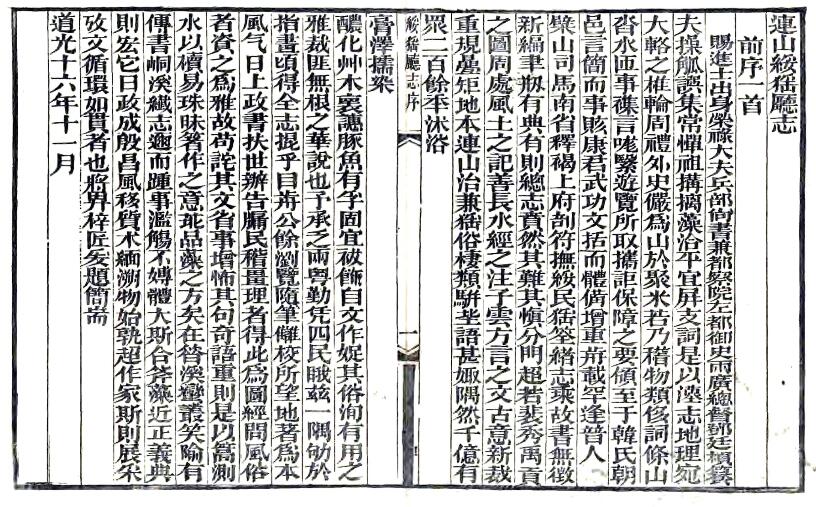 連山綏猺廳志
前序一首
賜進士出身榮祿大夫兵部尚書兼都察院左都御史兩廣總督鄧廷楨譔
夫操觚誤集常憚祖搆摛藻治平宜屏支詞是以漢志地理宛
大輅之椎輪周禮外史儼為山於聚米若乃稽物類侈詞條山
沓水匝事襍言哤繄遊覽所取攜詎保障之要領至于韓氏朝
邑言簡而事賅康君武功文括而體備增重冊載罕逢晉人
檗山司馬南省釋褐上府剖符撫綏民猺筌緒志乘故書無徵
新編聿刱有典有則總志賁然其難其慎分門超若裴秀禹貢
之圖周處風土之記善長水經之注子雲方言之文古意新裁
重規疊矩地本連山治兼猺俗棲類騈坒語甚娵隅然千億有
眾二百餘年沐浴
綏猺廳志序
一
膏澤擩染
醲化艸木裒讌豚魚有孚固宜祓飾自文作娖其俗洵有用之
雅裁匪無根之華說也予承乏兩粵勤凭四民茲一隅劬於
指畫頃得全志提乎目歬公餘瀏覽隨筆讎校所望地著為本
風气日上政書扶世辦告牖民稽畺理者得此為圖經問風俗
者資之為雅故苟詫其文省事增怖其句奇語重則是以蒿測
水以櫝易珠昧箸作之意乖品藻之方矣在昔溪蠻叢笑喻有
傳書峒溪纖志逾而踵事濫觴不嫥體大斯合斧藻近正義典
則宏它日政成殷昌風移質朩緬溯物始孰超作家斯則展采
攷文循環如貫者也將畀梓匠爰題簡耑
道光十六年十一月